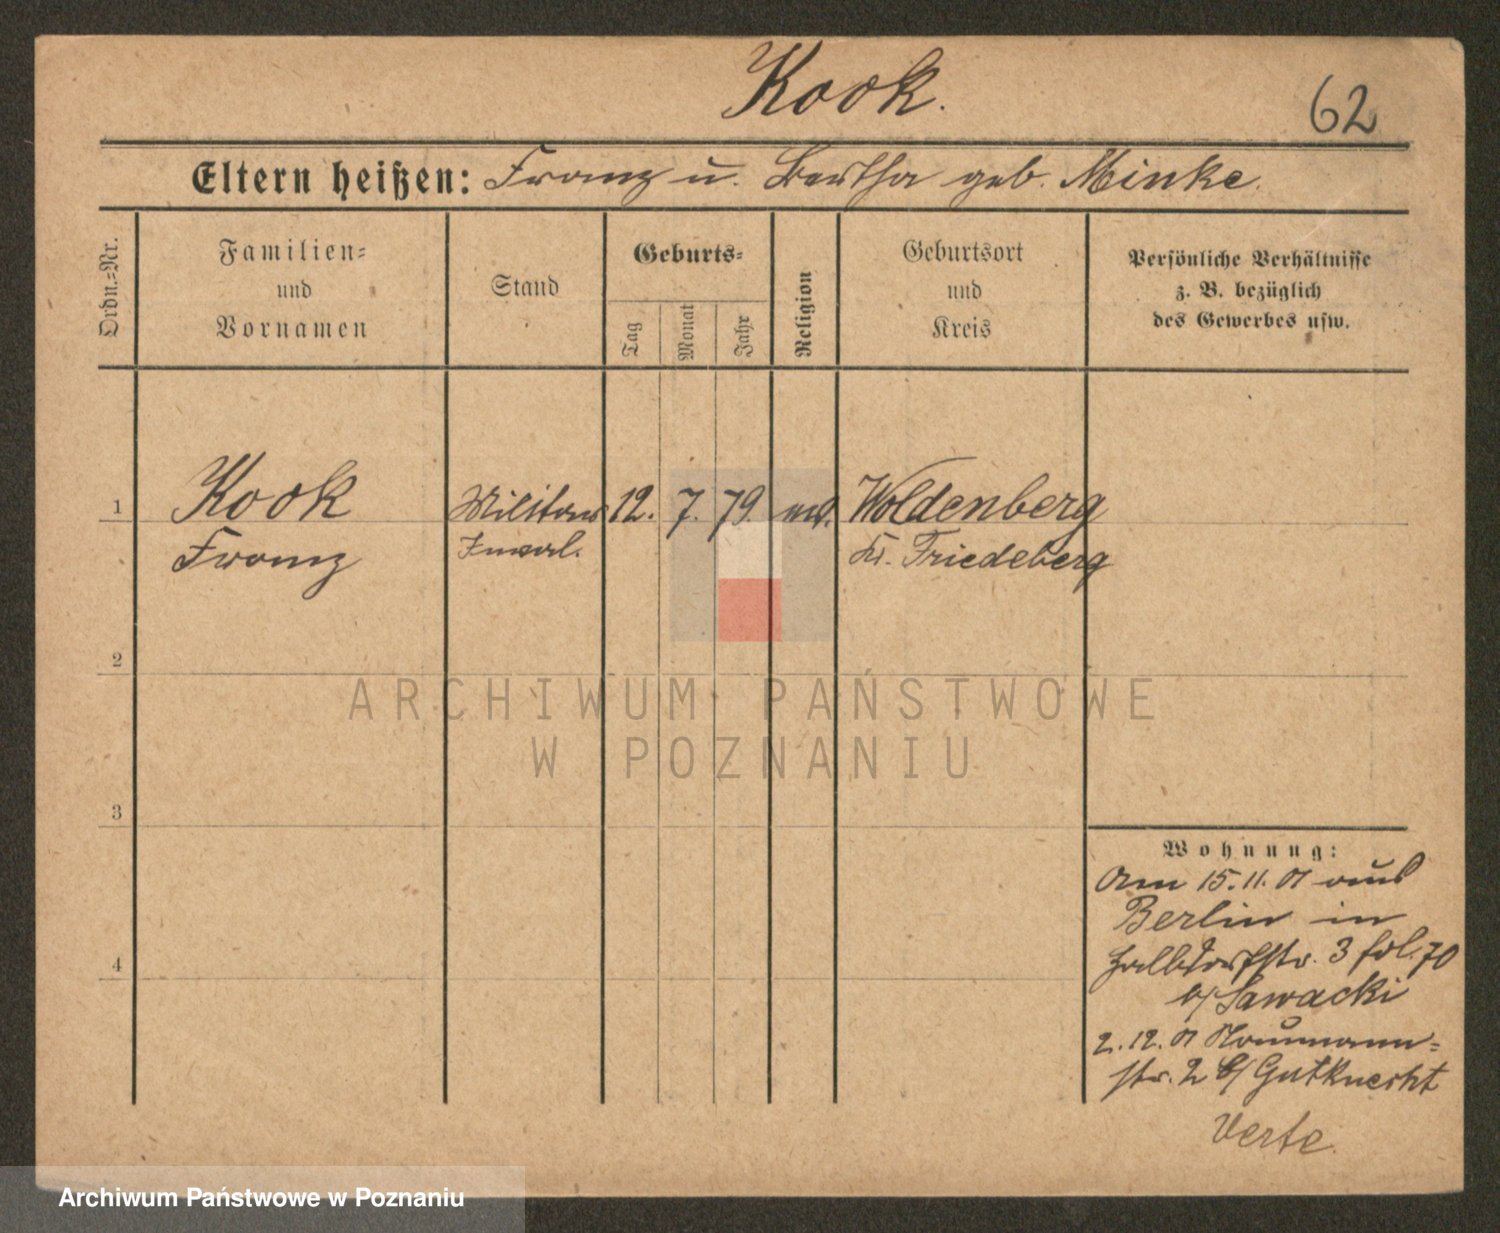 Kook.
62
Eltern heißen: Franz u. Bertha geb. Minke.
Ordn.-Nr.
Familien-
und
Vornamen
Stand
Geburts-
Tag
Monat
Jahr
Religion
Geburtsort
und
Kreis
Persönliche Verhältnisse
z. B. bezüglich
des Gewerbes usw.
1
Kook
Franz
Militär
Inval.
12.
7.
79.
Woldenberg
Kr. Friedeberg
2
3
4
Wohnung:
Am 15.11.01 aus
Berlin in
3 fol. 70
b/ Sawacki
2.12.01 Naumann-
str. 2 b/ Gutknecht
Verte.
ARCHIWUM PAŃSTWOWE
W POZNANIU
Archiwum Państwowe w Poznaniu